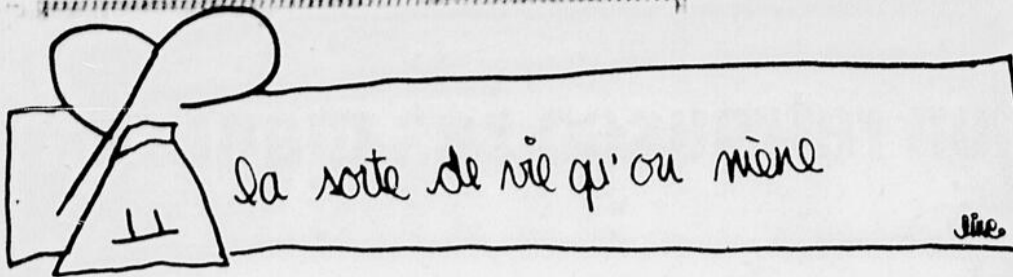 la sorte de vie qu'on mène